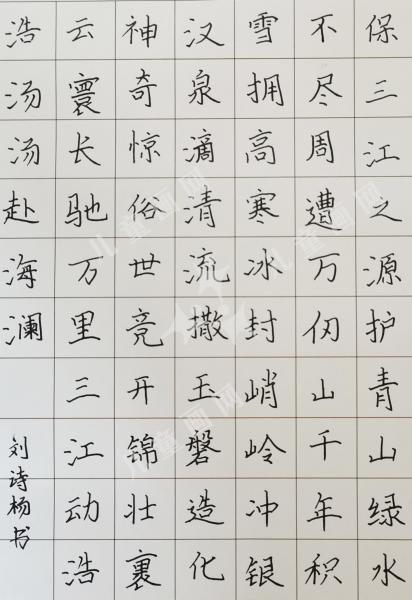 保三江之源护青山绿水
不尽周遭万仞山千年积
雪拥高寒冰封峭岭冲银
汉泉滴清流撒玉磐造化
神奇惊俗世竞开锦壮裹
云寰长驰万里三江动浩
浩汤汤赴海澜
刘诗杨书
儿童画网
儿童画网
儿童画网